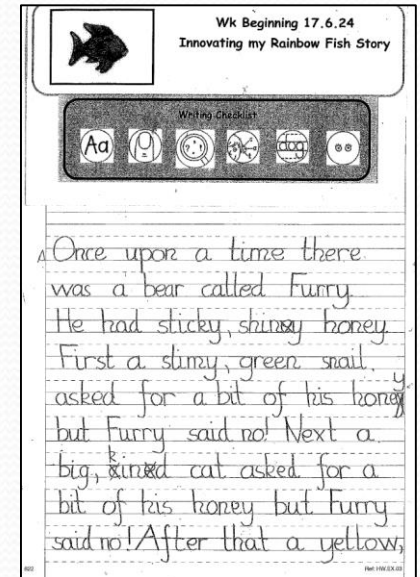 Wk Beginning 17.6.24
Innovating my Rainbow Fish Story
Writing Checklist
Aa
dog
Once upon a time there
was a bear called Furry.
He had sticky, shiny honey.
First a slimy, green snail,
asked for a bit of his honey
but Furry said no! Next a
big, kind cat asked for a
bit of his honey but Furry
said no! After that a yellow,